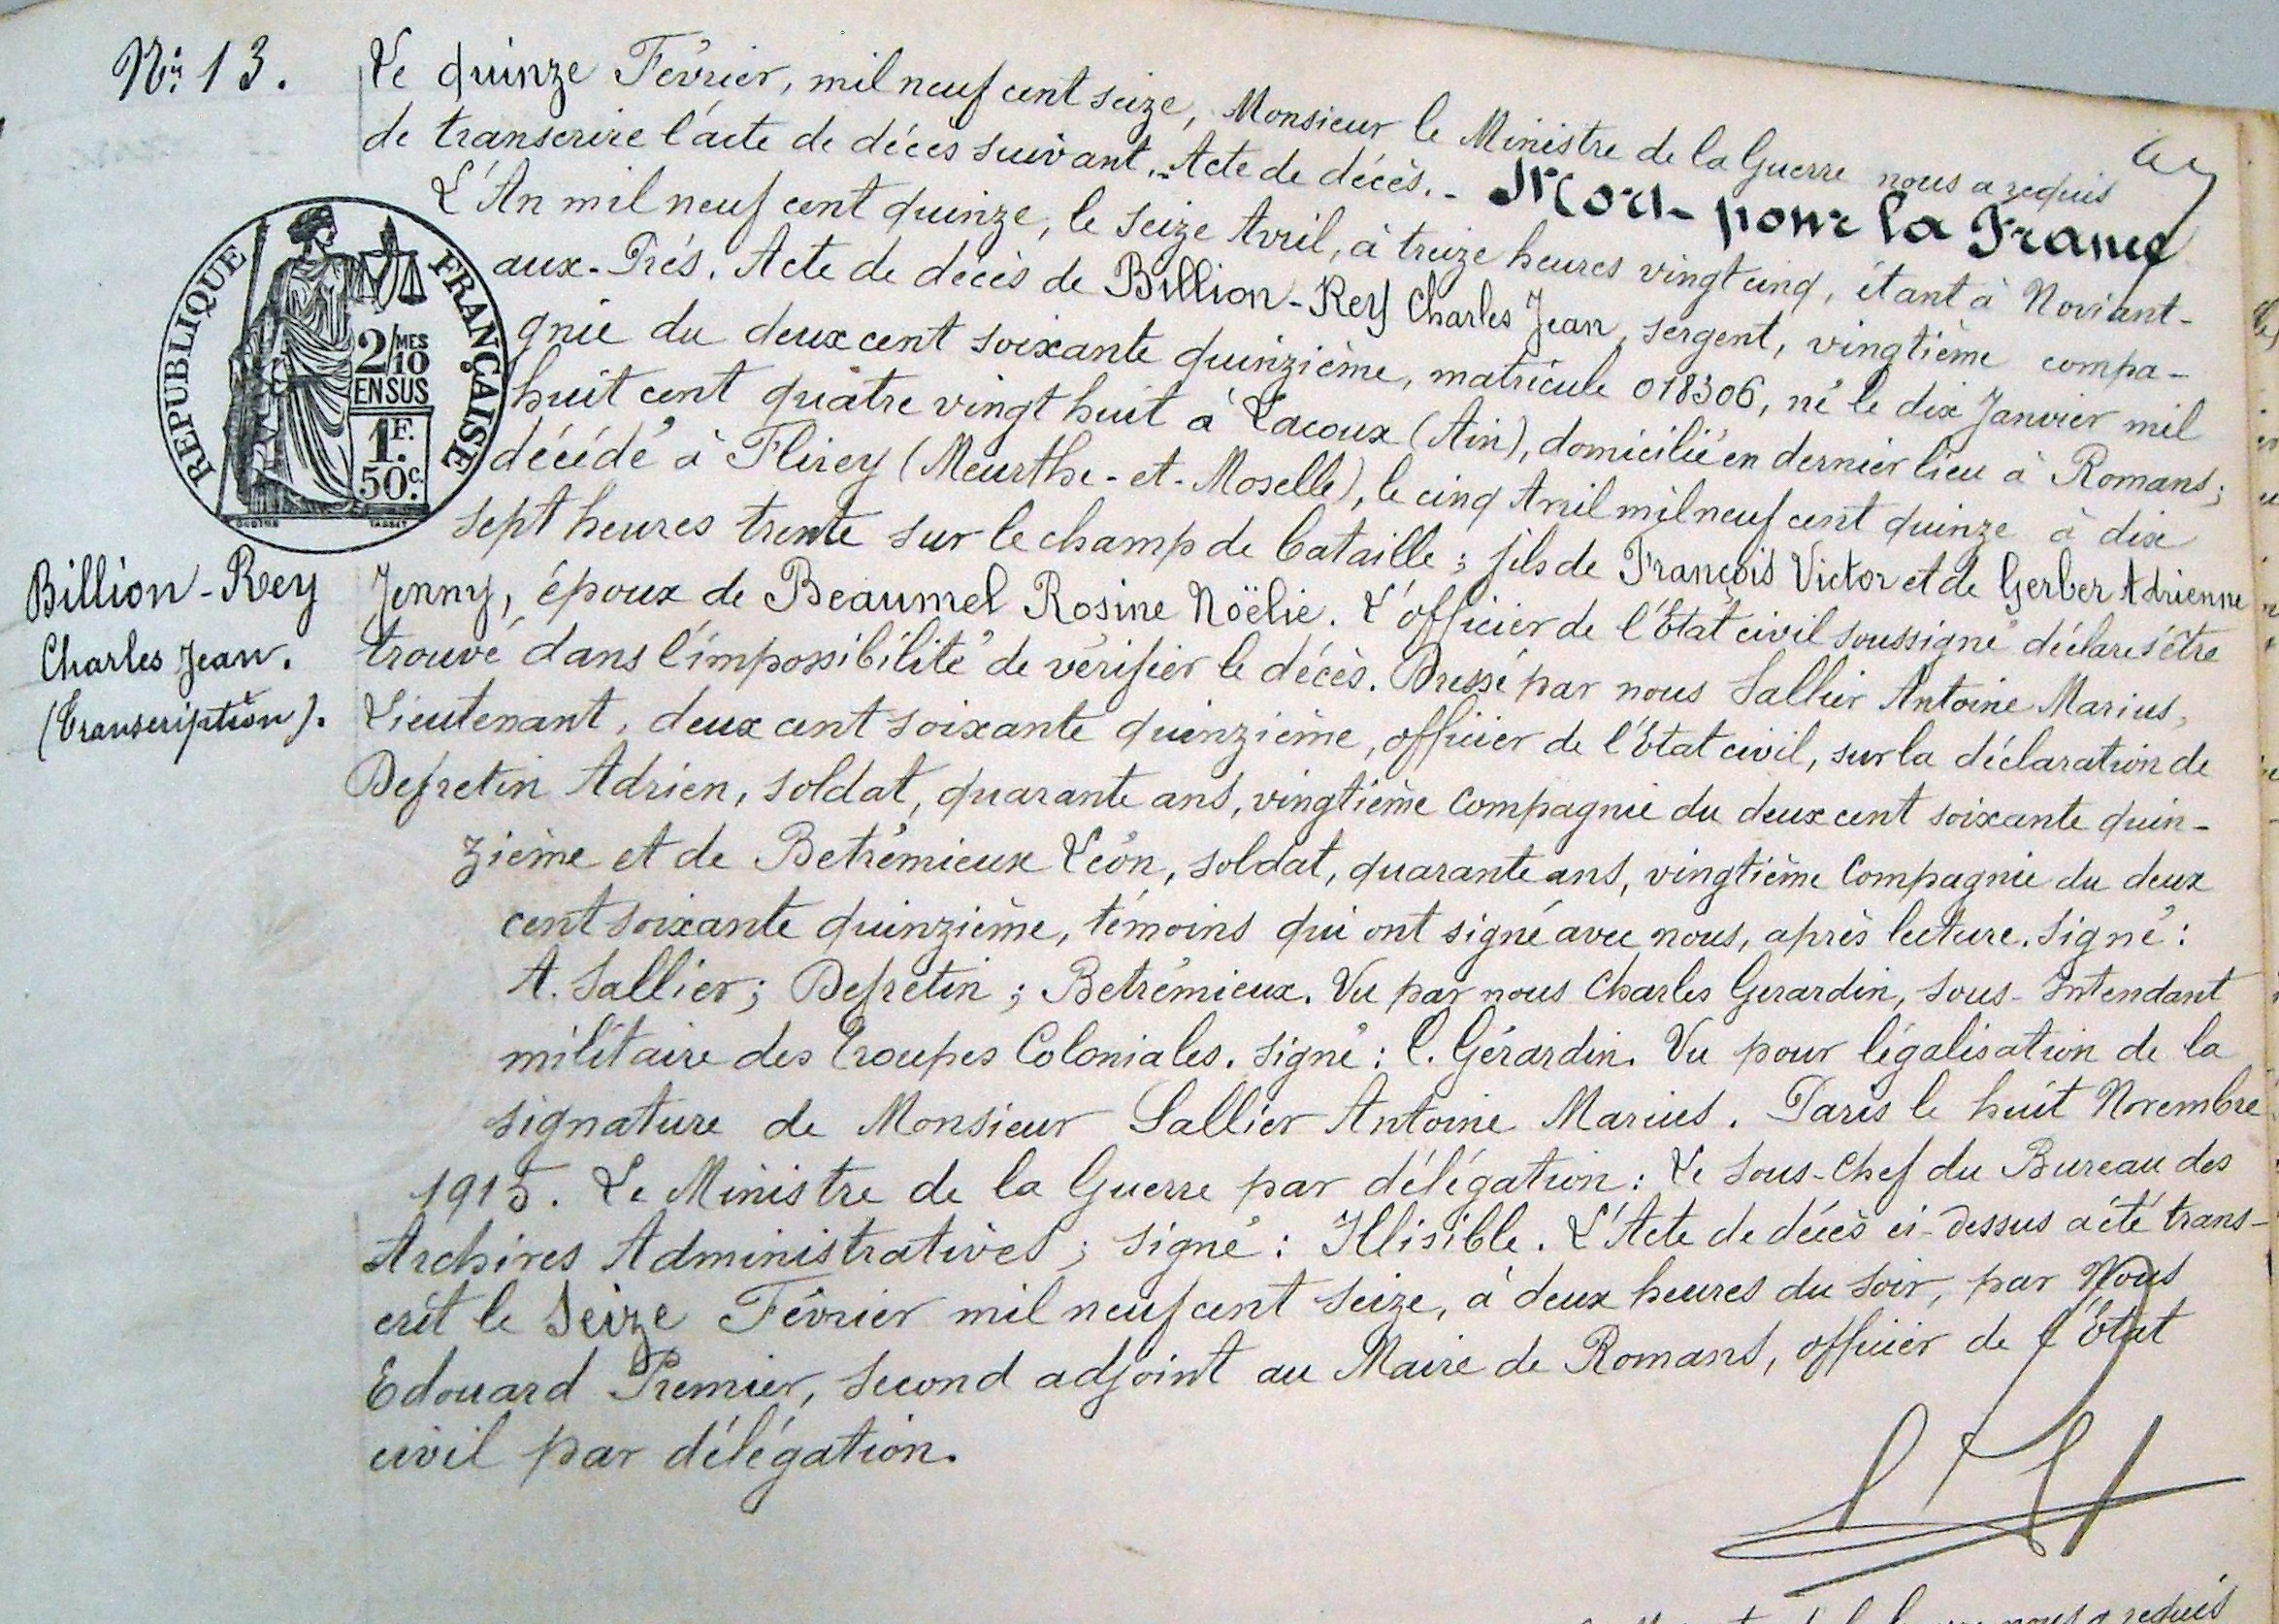 N° 13.
Le quinze Février, mil neuf cent seize, Monsieur le Ministre de la Guerre nous a requis
de transcrire l'acte de décès suivant. - Acte de décès. -
Mort pour la France
L'An mil neuf cent quinze, le seize Avril, à treize heures vingt cinq, étant à Noviant-
aux-Prés. Acte de décès de Billion-Rey Charles Jean, sergent, vingtième compa-
gnie du deux cent soixante quinzième, matricule 018306, né le dix Janvier mil
huit cent quatre vingt huit à Lacoux (Ain), domicilié en dernier lieu à Romans;
décédé à Flirey (Meurthe-et-Moselle), le cinq Avril mil neuf cent quinze à dix
sept heures trente sur le champ de bataille; fils de François Victor et de Gerber Adrienne
Jenny, époux de Beaumel Rosine Noëlie. L'officier de l'État civil soussigné déclare s'être
trouvé dans l'impossibilité de vérifier le décès. Dressé par nous Sallier Antoine Marius,
Lieutenant, deux cent soixante quinzième, officier de l'État civil, sur la déclaration de
Defretin Adrien, soldat, quarante ans, vingtième Compagnie du deux cent soixante quin-
zième et de Betrémieux Léon, soldat, quarante ans, vingtième Compagnie du deux
cent soixante quinzième, témoins qui ont signé avec nous, après lecture. Signé:
A. Sallier; Defretin; Betrémieux. Vu par nous Charles Gerardin, Sous-Intendant
militaire des Troupes Coloniales. Signé: C. Gérardin. Vu pour légalisation de la
signature de Monsieur Sallier Antoine Marius. Paris le huit Novembre
1915. Le Ministre de la Guerre par délégation: Le Sous-Chef du Bureau des
Archives Administratives; signé: Illisible. L'Acte de décès ci-dessus a été trans-
crit le Seize Février mil neuf cent seize, à deux heures du soir, par Nous
Edouard Premier, Second adjoint au Maire de Romans, officier de l'État
civil par délégation.
REPUBLIQUE FRANÇAISE
2/MES
10
EN SUS
1F.
50c.
Billion-Rey
Charles Jean.
(Transcription).
nous a requis